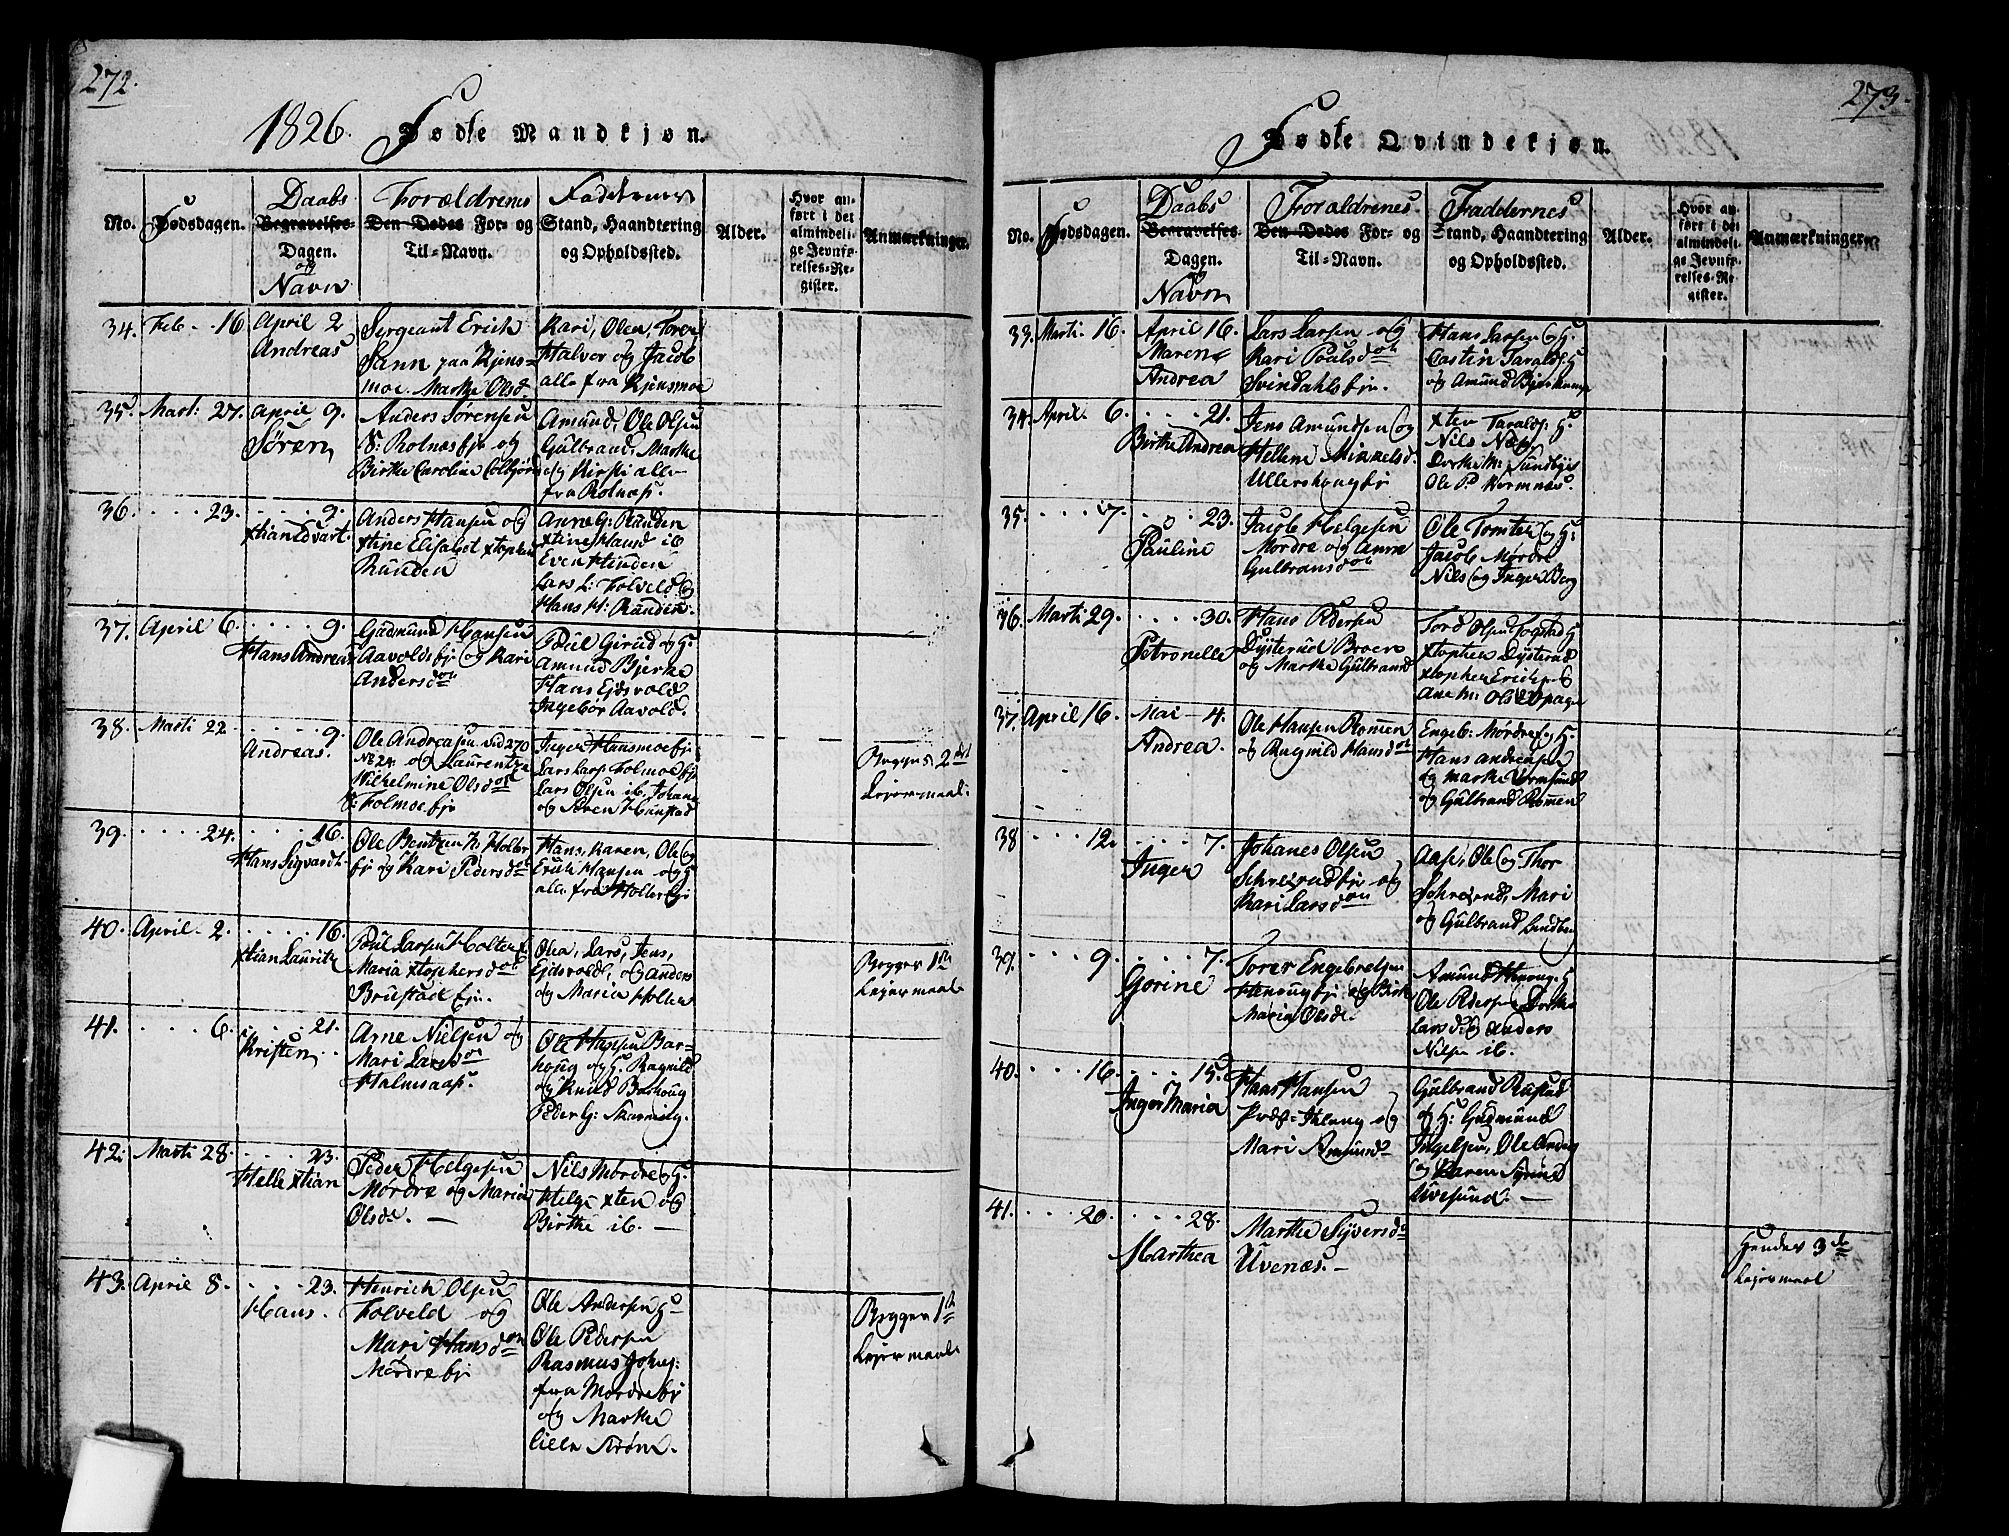 272.
1826. Fødte Mandkjøn.
No.
Fødsdagen.
Daabs
Begravelses-
Dagen.
og
Navn
Forældrenes
Den Dødes For- og
Til-Navn.
Faddernes
Stand, Haandtering
og Opholdssted.
Alder.
Hvor an-
ført i det
almindeli-
ge Jevnfø-
relses-Re-
gister.
Anmærkninger.
34. Feb. 16
April 2
Andreas
Sergeant Erich
Sann paa Kjens-
moe. Marthe Olsd.
Kari, Olea, Torer
Halvor og Jacob
alle fra Kjensmoe
35. Marti 27.
April 9.
Søren
Anders Sørensen
S. Rolnæs ejr og
Birthe Caroline Colbjørn
Amund, Ole Olsen
Gulbrand, Marthe
og Kirsti alle
fra Rolnæs.
36. . . . . 23.
. . . . 9.
Xtian Edvart.
Anders Hansen og
Xtine Elisabet Xtophers
Runden
Anne G: Runden
Xtine Haml ib
Even Hinden
Lars L: Tolveld og
Hans H: Runden.
37. April 6.
. . . . 9.
Hans Andreas
Gudmund Hansen
Aavolds ejr og Kari
Andersd
Poul Girud og H:
Amund Bjerke
Hans Ejdsvold
Ingebor Aavold.
38. Marti 22
. . . . 9
Andreas.
Ole Andreasen vid 270
No 24 og Laurentza
Wilhelmine Olsd
S: Folmoe ejr
Inger Hansmoe ejr
Lars Lars. Folmoe ejr
Lars Olsen ib, Johan
og Søren Hanstad
Begges 2det
Lejermaal.
39. . . . . 24.
. . . . 16.
Hans Sigvardt.
Ole Bentzen H: Holler
ejr og Kari Pedersd
Hans, Karen, Ole og
Erich Hansen og H:
alle fra Holler ejr
40. April 2.
. . . . 16.
Xtian Lauritz
Poul Larsen Holter &
Maria Xtophersd
Brustad ejr.
Olea, Lars, Jens,
Ejdsvold, og Anders
og Maria Holter
Begges 1te
Lejermaal
41. . . . 6.
. . . 21.
Kristen
Arne Nielsen og
Mari Larsd
Halmsaas.
Ole Hagesen Bar-
houg og H. Ragnild
og Knud Barhoug
Peder G: Skarmsly.
42. Marti 28.
. . . . 23.
Helle Xtian
Peder Helgesen
Mordre og Maria
Olsd. —
Nils Mordre og H:
Helge Xten og
Birthe ib. —
43. April 8.
. . . . 23.
Hans.
Henrich Olsen
Folveld og
Mari Hansd
Mordre ejr
Ole Andersen H:
Ole Pedersen
Rasmus Johns:
fra Mordre ejr
og Marthe
Lille Strøm.
Begges 1te
Lejermaal
273.
Fødte Qvindekjøn.
No.
Fødsdagen.
Daabs
Begravelses-
Dagen.
og
Navn
Forældrenes
Den Dødes For- og
Til-Navn.
Faddernes
Stand, Haandtering
og Opholdssted.
Alder.
Hvor an-
ført i det
almindeli-
ge Jevnfø-
relses-Re-
gister.
Anmærkninger.
33. Marti 16.
April 16.
Maren
Andrea
Lars Larsen og
Kari Poulsd
Svindahls ejr.
Hans Larsen og H.
Castin Tarald H
og Amund Bjerkamp
34. April 6.
. . . . 21.
Birthe Andrea
Jens Amundsen og
Hellene Mikkelsd.
Ullershoug ejr
Xten Tarals. H:
Nils Næs
Dorthe M: Sundbyes
Ole P. Wormnes.
35. . . . 7.
. . . 23.
Pauline
Jacob Helgesen
Mordre og Anne
Gulbransd
Ole Tomter og H:
Jacob Mordre
Nils og Inger Berg
36. Marti 29.
. . . . 30.
Petronelle
Hans Pedersen
Dysterud Broen
og Marthe Gulbrand
Tord Olsen Fogstad H
Xtopher Dysterud
Xtopher Erichs og
Ane M: Olsd Opager
37. April 16.
Mai 4.
Andrea.
Ole Hansen Romen
og Ragnild Hansd
Engeb: Mordre og H:
Hans Andreasen
og Marthe Wormsund
og Gulbrand Romen
38 . . . 12.
. . . . 7.
Inger
Johanes Olsen
Schreirud ejr og
Kari Larsd
Aase, Ole og Thor
Schreirud, Mari
og Gulbrand Lindber
39. . . . 9.
. . . . 7.
Gorine
Torer Engebretsen
Henoug ejr og Birthe
Maria Olsd.
Amund Henoug H
Ole Peders, Dorthe
Larsd og Anders
Nilsen ib.
40. . . . 16.
. . . . 15.
Inger Maria
Hans Hansen
Præst-Ihlang og
Mari Amund
Gulbrand Rustad
og H: Gudmund
Ingelsen, Ole Anders
og Karen Syrine
Uvesund. —
41. . . . 20.
. . . . 28.
Marthea
Marthe Syversd
Uvenæs. —
Hendes 3de
Lejermaal